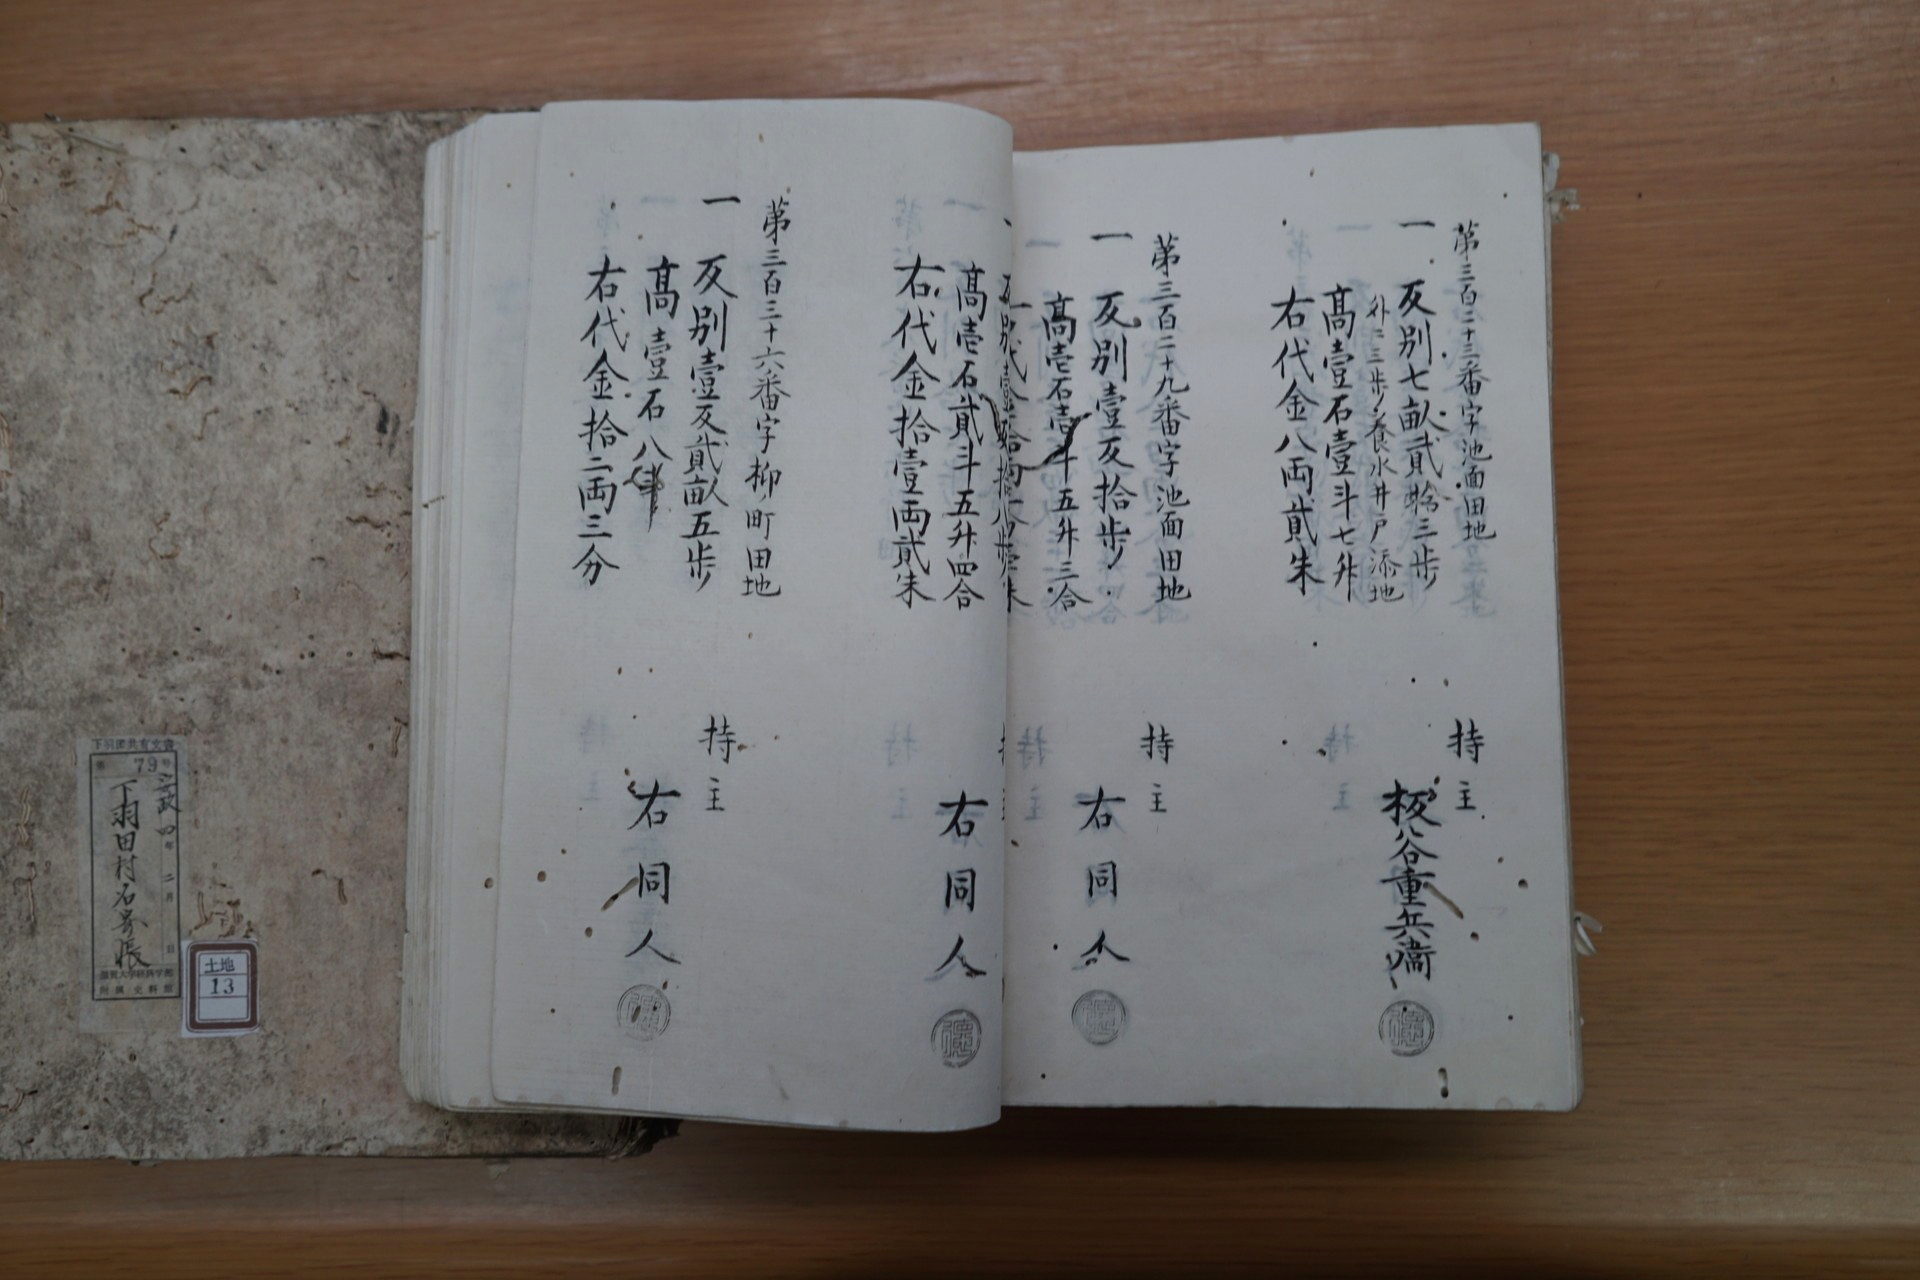 第三百二十三番字池面田地
一 反別七畝貳拾三歩
外ニ三歩養水井戸添地
高壹石壹斗七升
右代金八両貳朱
持主
板谷重兵衞
第三百二十九番字池面田地
一 反別壹反拾歩
高壱石壱斗五升三合
持主
右同人
高壱石貳斗五升四合
右代金拾壹両貳朱
右同人
第三百三十六番字柳町田地
一 反別壹反貳畝五歩
高壹石八斗
右代金拾二両三分
持主
右同人
79
四年二月 日
下羽田村名寄帳
滋賀大学経済学部
附属史料館
土地
13